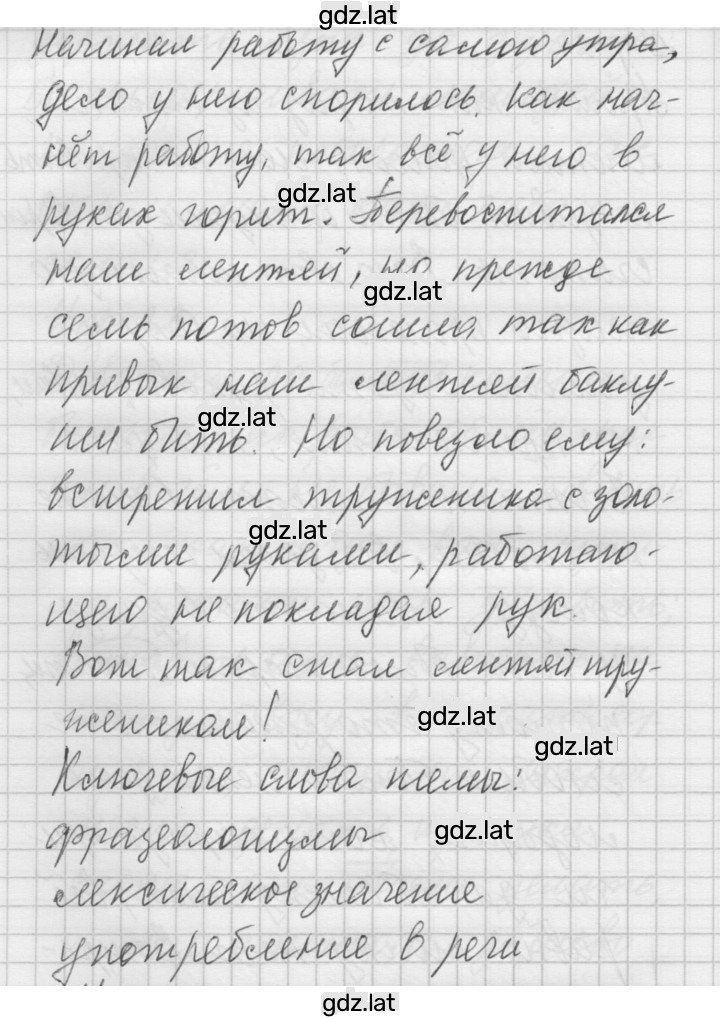 gdz.lat
Начинал работу с самого утра,
дело у него спорилось. Как нач-
нёт работу, так всё у него в
gdz.lat
руках горит. Перевоспитался
наш лентяй, но прежде
gdz.lat
семь потов сошло так как
привык наш лентяй баклу-
gdz.lat
ши бить. Но повезло ему:
встретил труженика с золо-
gdz.lat
тыми руками, работаю-
щего не покладая рук.
Вот так стал лентяй тру-
gdz.lat
жеником!
gdz.lat
Ключевые слова темы:
gdz.lat
фразеологизмы
лексическое значение
употребление в речи
gdz.lat